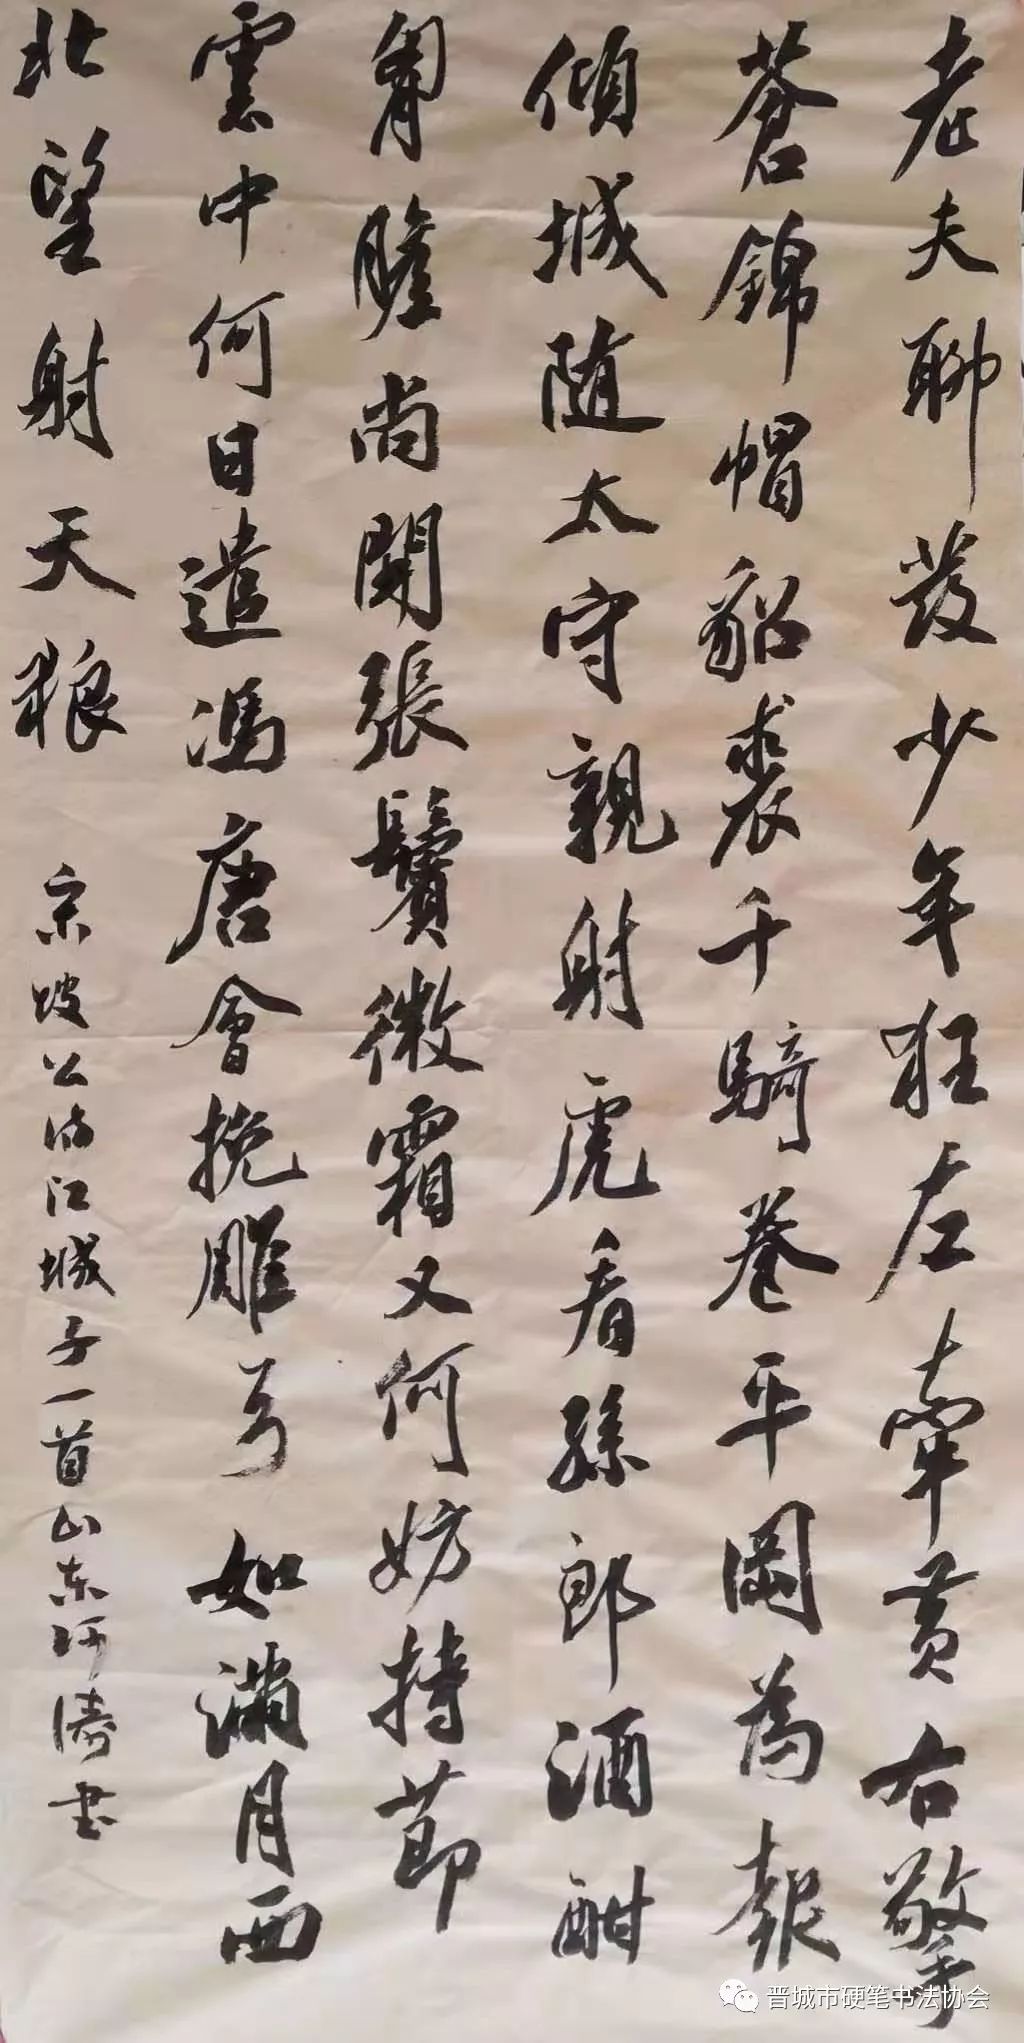 老夫聊发少年狂左牵黄右擎
蒼錦帽貂裘千騎卷平岡為報
傾城随太守親射虎看孫郎酒酣
胷膽尚開張鬢微霜又何妨持節
雲中何日遣馮唐會挽雕弓如滿月西
北望射天狼
宋坡公詩江城子一首山东河濤书
晋城市硬笔书法协会